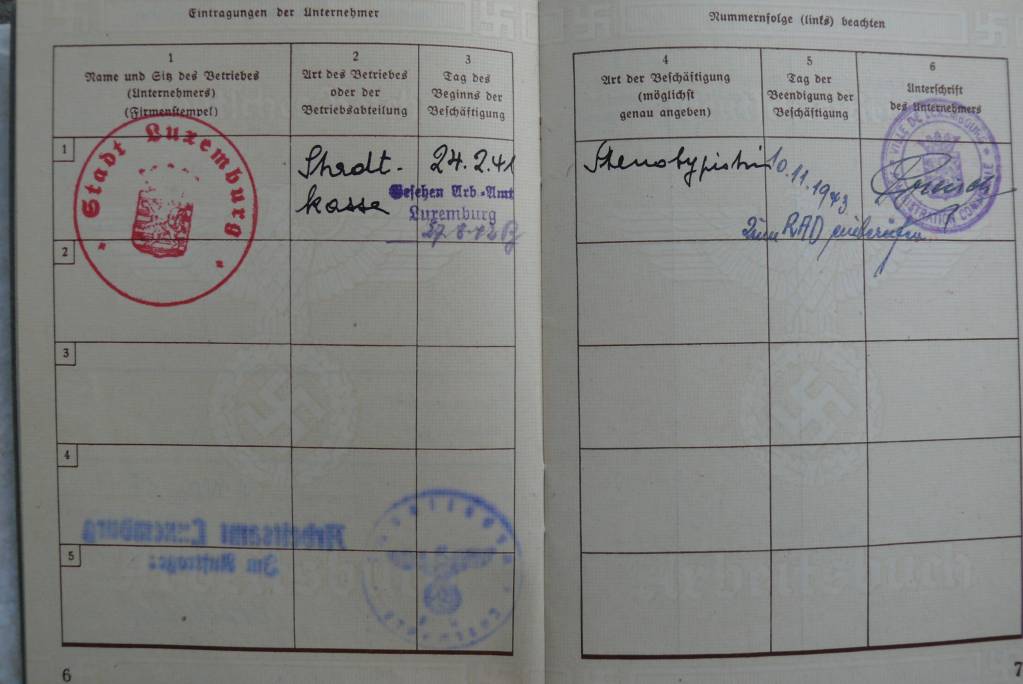 Eintragungen der Unternehmer
1
Name und Sitz des Betriebes
(Unternehmers)
(Firmenstempel)
2
Art des Betriebes
oder der
Betriebsabteilung
3
Tag des
Beginns der
Beschäftigung
1
Stadt Luxemburg
Stadt-
kasse
24.2.41
Gesehen Arb.-Amt
Luxemburg
2
3
4
5
Arbeitsamt Luxemburg
Im Auftrage:
6
Nummernfolge (links) beachten
4
Art der Beschäftigung
(möglichst
genau angeben)
5
Tag der
Beendigung der
Beschäftigung
6
Unterschrift
des Unternehmers
Stenotypistin
10.11.1943
zum RAD
VILLE DE LUXEMBOURG
ADMINISTRATION COMMUNALE
7